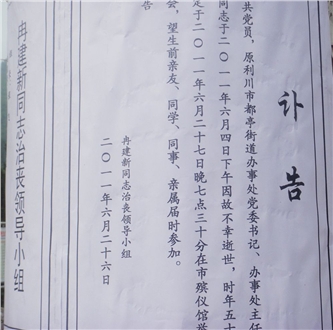 讣告
共党员，原利川市都亭街道办事处党委书记、办事处主任
同志于二〇一一年六月四日下午因故不幸逝世，时年五十
定于二〇一一年六月二十七日晚七点三十分在市殡仪馆举
会，望生前亲友、同学、同事、亲属届时参加。
告
冉建新同志治丧领导小组
二〇一一年六月二十六日
冉建新同志治丧领导小组